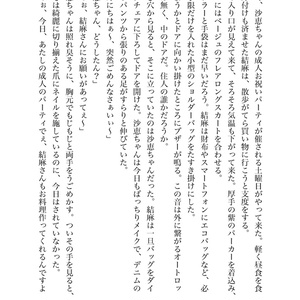 、沙恵ちゃんの成人お祝いパーティが催される土曜日がやって来た。軽く昼食を食
付けも済ませた結麻は、散歩がてら買い物に行こうと支度をする。
入り口が見えて来て、そろそろ気温も下がって来た。厚手の紫のパーカーを着込み、
にはベージュのフレアロングスカートを合わせる。
ラーと手袋はまだ早いだろう。結麻は財布やスマートフォンにエコバッグなど、必
限だけを入れた小型のショルダーバッグをたすき掛けにした。
うかとドアに向い掛けたところでブザーが鳴る。この音は外に繋がるオートロッ
無く、中のドアだ。住人の誰だろうか。
穴から見ると、そこに立っていたのは沙恵ちゃんだった。結麻は一旦バッグをダイ
チェアに下ろしてドアを開けた。沙恵ちゃんは今日もばっちりメイクで、デニムの
パンツから張りのある足がすらりと伸びていた。
にちはぁ、突然ごめんなさぁいぃ〜」
ちゃん、どうしたん?」
、結麻さんにお願いがあってぇ〜」
ちゃんは照れ臭そうに、胸元でもじもじと両手をうごめかす。ついその手を見ると、
は綺麗に切り揃えた爪にネイルを施しているのに、今日はそれがされていなかった。
お、今日、あたしの成人のパーティでぇ、結麻さんもお料理作ってくれるんですよ